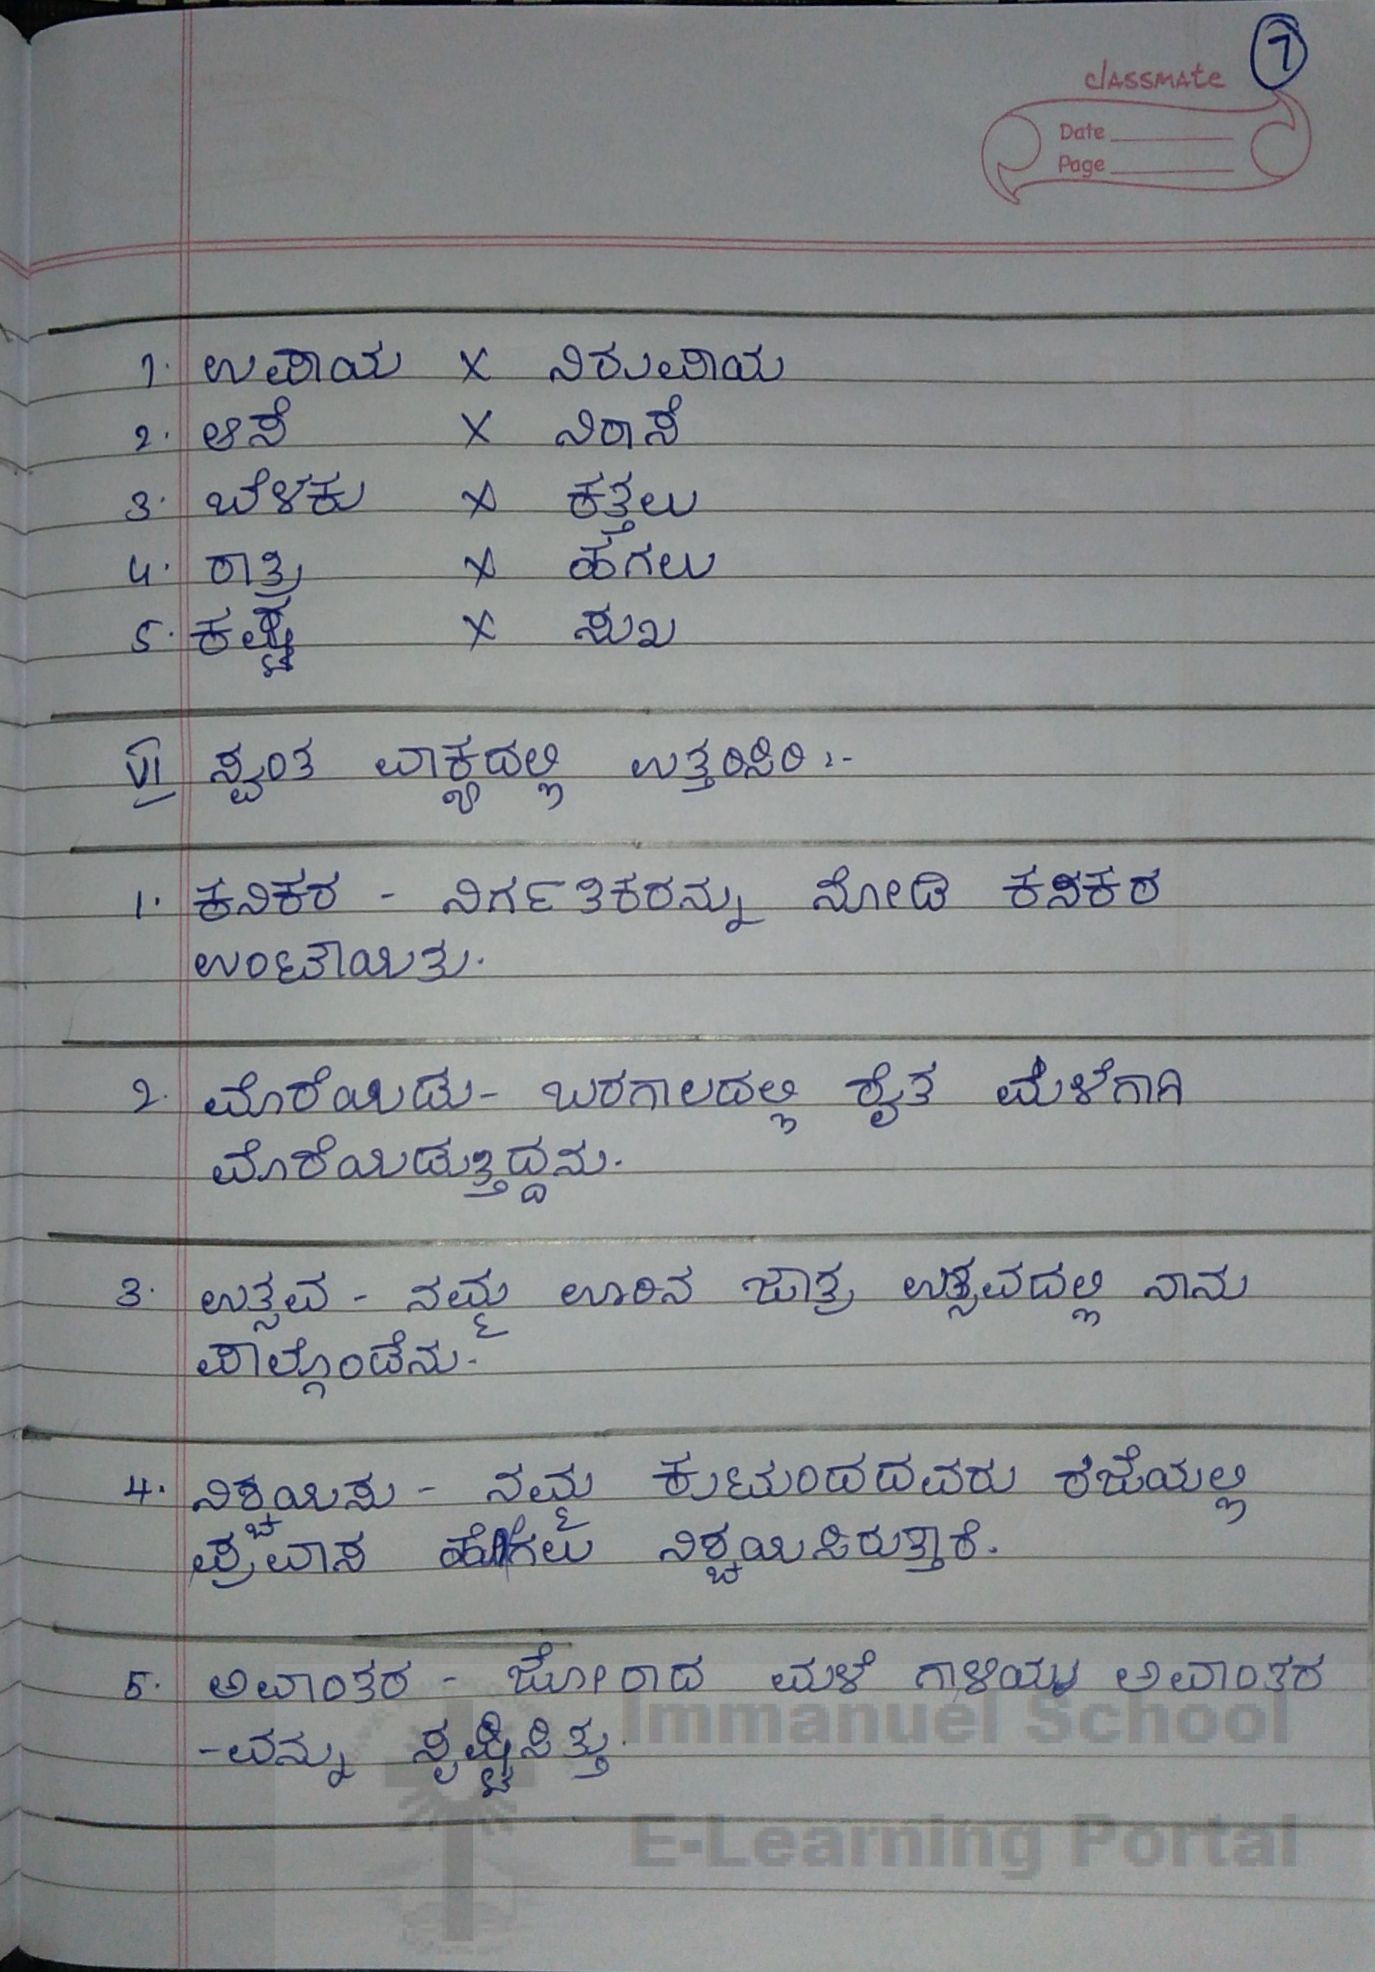 7
classmate
Date
Page
1. ಉಪಾಯ X ನಿರುಪಾಯ
2. ಆಸೆ X ನಿರಾಸೆ
3. ಬೆಳಕು X ಕತ್ತಲು
4. ರಾತ್ರಿ X ಹಗಲು
5. ಕಷ್ಟ X ಸುಖ
VI ಸ್ವಂತ ವಾಕ್ಯದಲ್ಲಿ ಉತ್ತರಿಸಿರಿ :-
1. ಕನಿಕರ - ನಿರ್ಗತಿಕರನ್ನು ನೋಡಿ ಕನಿಕರ
ಉಂಟಾಯಿತು.
2. ಮೊರೆಯಿಡು - ಬರಗಾಲದಲ್ಲಿ ರೈತ ಮಳೆಗಾಗಿ
ಮೊರೆಯಿಡುತ್ತಿದ್ದನು.
3. ಉತ್ಸವ - ನಮ್ಮ ಊರಿನ ಜಾತ್ರೆ ಉತ್ಸವದಲ್ಲಿ ನಾನು
ಪಾಲ್ಗೊಂಡೆನು.
4. ನಿಶ್ಚಯಿಸು - ನಮ್ಮ ಕುಟುಂಬದವರು ರಜೆಯಲ್ಲಿ
ಪ್ರವಾಸ ಹೋಗಲು ನಿಶ್ಚಯಿಸಿರುತ್ತಾರೆ.
5. ಅವಾಂತರ - ಜೋರಾದ ಮಳೆ ಗಾಳಿಯು ಅವಾಂತರ
-ವನ್ನು ಸೃಷ್ಟಿಸಿತ್ತು.
Immanuel School
E-Learning Portal